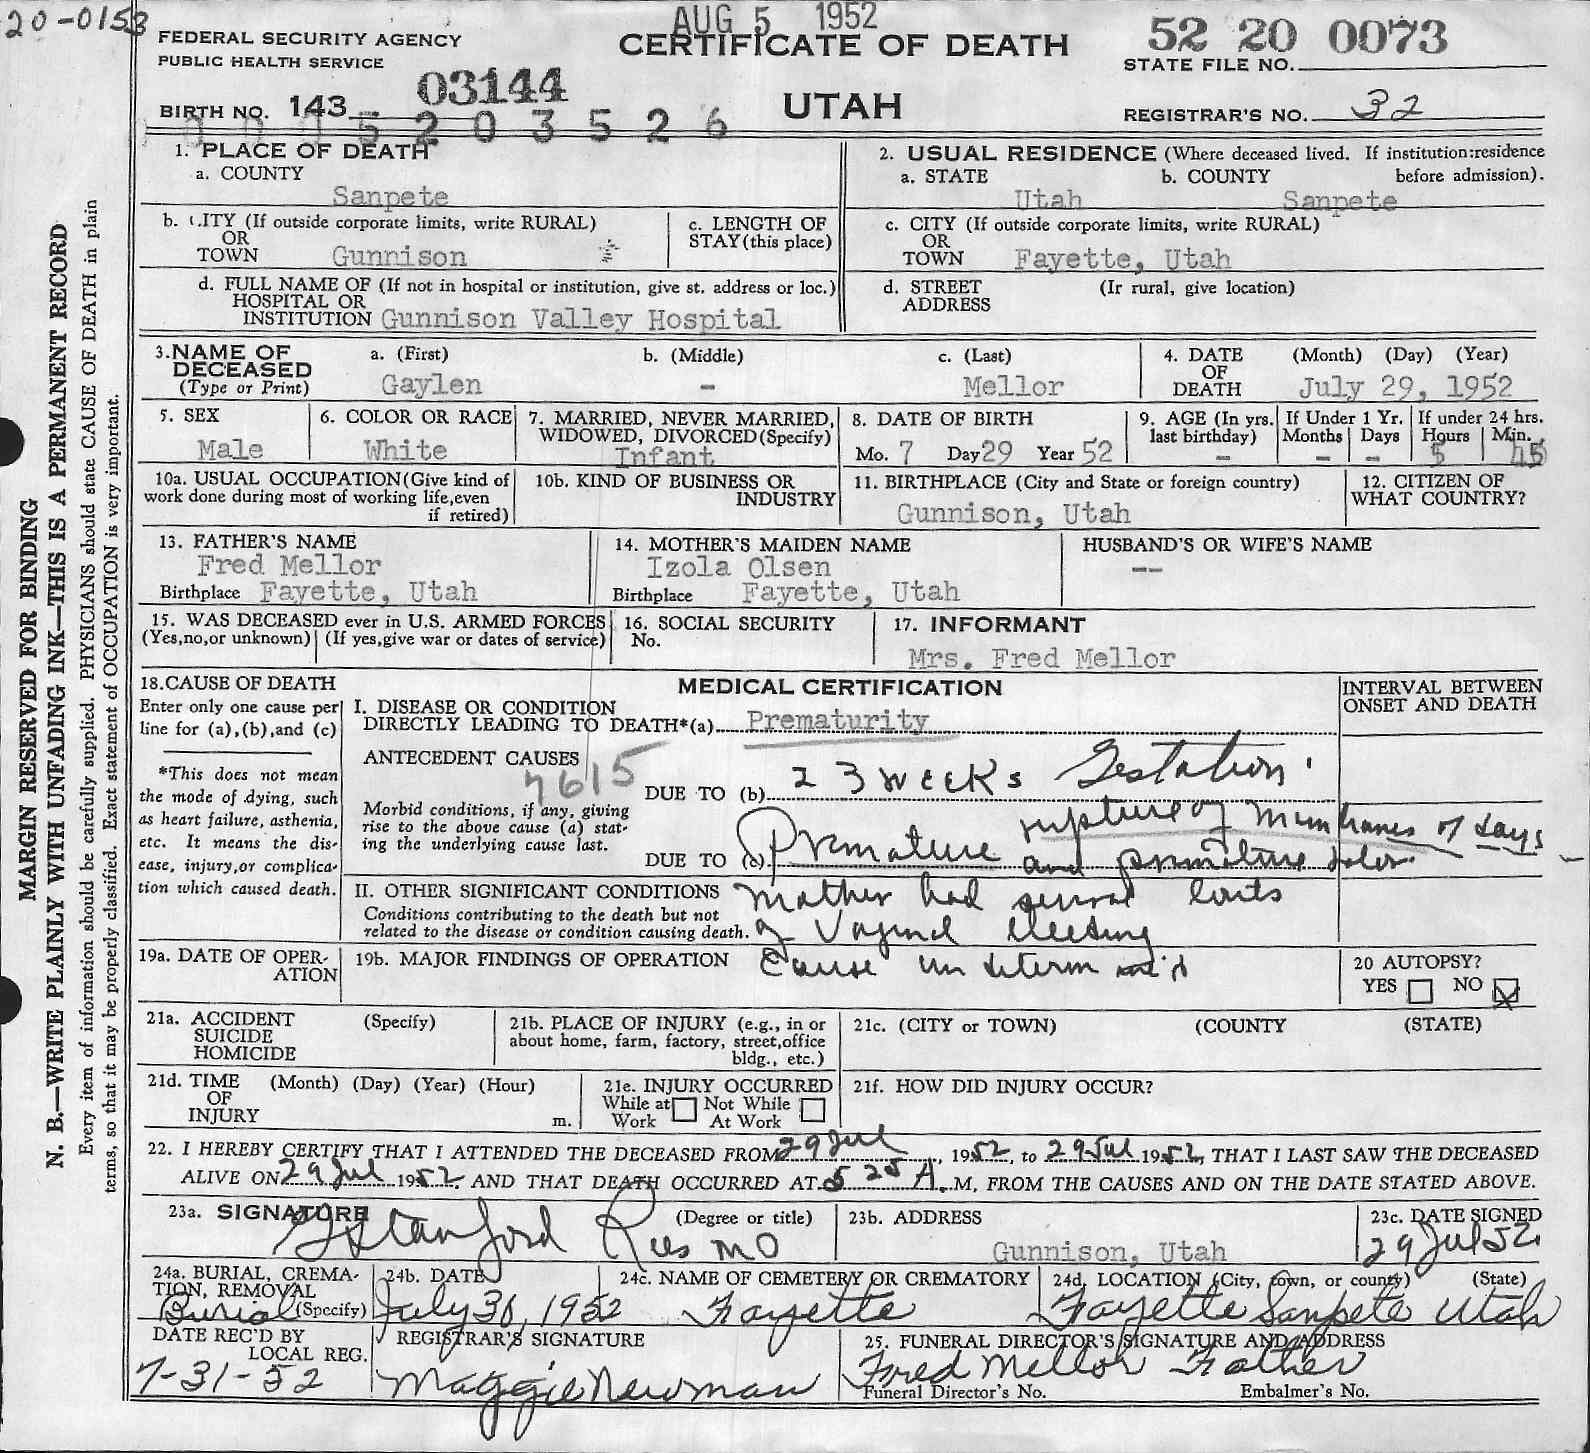 20-0153
AUG 5 1952
FEDERAL SECURITY AGENCY
PUBLIC HEALTH SERVICE
CERTIFICATE OF DEATH
UTAH
52 20 0073
STATE FILE NO.
BIRTH NO. 143
03144
5 2 0 3 5 2 6
REGISTRAR'S NO. 32
MARGIN RESERVED FOR BINDING
N. B.—WRITE PLAINLY WITH UNFADING INK—THIS IS A PERMANENT RECORD
Every item of information should be carefully supplied. PHYSICIANS should state CAUSE OF DEATH in plain
terms, so that it may be properly classified. Exact statement of OCCUPATION is very important.
1. PLACE OF DEATH
a. COUNTY
Sanpete
2. USUAL RESIDENCE (Where deceased lived. If institution:residence before admission).
a. STATE
Utah
b. COUNTY
Sanpete
b. CITY (If outside corporate limits, write RURAL)
OR
TOWN Gunnison
c. LENGTH OF
STAY(this place)
c. CITY (If outside corporate limits, write RURAL)
OR
TOWN Fayette, Utah
d. FULL NAME OF (If not in hospital or institution, give st. address or loc.)
HOSPITAL OR
INSTITUTION Gunnison Valley Hospital
d. STREET
ADDRESS
(Ir rural, give location)
3. NAME OF
DECEASED
(Type or Print)
a. (First)
Gaylen
b. (Middle)
-
c. (Last)
Mellor
4. DATE
OF
DEATH
(Month) (Day) (Year)
July 29, 1952
5. SEX
Male
6. COLOR OR RACE
White
7. MARRIED, NEVER MARRIED,
WIDOWED, DIVORCED(Specify)
Infant
8. DATE OF BIRTH
Mo. 7 Day 29 Year 52
9. AGE (In yrs.
last birthday)
-
If Under 1 Yr.
Months Days
- -
If under 24 hrs.
Hours Min.
5 45
10a. USUAL OCCUPATION(Give kind of
work done during most of working life,even
if retired)
10b. KIND OF BUSINESS OR
INDUSTRY
11. BIRTHPLACE (City and State or foreign country)
Gunnison, Utah
12. CITIZEN OF
WHAT COUNTRY?
13. FATHER'S NAME
Fred Mellor
Birthplace Fayette, Utah
14. MOTHER'S MAIDEN NAME
Izola Olsen
Birthplace Fayette, Utah
HUSBAND'S OR WIFE'S NAME
--
15. WAS DECEASED ever in U.S. ARMED FORCES
(Yes,no,or unknown) (If yes,give war or dates of service)
16. SOCIAL SECURITY
No.
17. INFORMANT
Mrs. Fred Mellor
18. CAUSE OF DEATH
Enter only one cause per
line for (a),(b),and (c)
*This does not mean
the mode of dying, such
as heart failure, asthenia,
etc. It means the dis-
ease, injury,or complica-
tion which caused death.
MEDICAL CERTIFICATION
INTERVAL BETWEEN
ONSET AND DEATH
I. DISEASE OR CONDITION
DIRECTLY LEADING TO DEATH*(a) Prematurity
ANTECEDENT CAUSES
7615
Morbid conditions, if any, giving
rise to the above cause (a) stat-
ing the underlying cause last.
DUE TO (b) 23 weeks Gestation.
DUE TO (c) Premature rupture of membranes of days
and premature labor
II. OTHER SIGNIFICANT CONDITIONS
Conditions contributing to the death but not
related to the disease or condition causing death.
Mother had several bouts
of Vaginal bleeding
Cause undetermined
19a. DATE OF OPER-
ATION
19b. MAJOR FINDINGS OF OPERATION
20 AUTOPSY?
YES NO
21a. ACCIDENT
SUICIDE
HOMICIDE
(Specify)
21b. PLACE OF INJURY (e.g., in or
about home, farm, factory, street,office
bldg., etc.)
21c. (CITY or TOWN) (COUNTY (STATE)
21d. TIME
OF
INJURY
(Month) (Day) (Year) (Hour)
m.
21e. INJURY OCCURRED
While at Not While
Work At Work
21f. HOW DID INJURY OCCUR?
22. I HEREBY CERTIFY THAT I ATTENDED THE DECEASED FROM 29 Jul, 1952, to 29 Jul 1952, THAT I LAST SAW THE DECEASED
ALIVE ON 29 Jul 1952, AND THAT DEATH OCCURRED AT 5 25 A.M, FROM THE CAUSES AND ON THE DATE STATED ABOVE.
23a. SIGNATURE
Stanford Rees MD
(Degree or title)
23b. ADDRESS
Gunnison, Utah
23c. DATE SIGNED
29 Jul 52
24a. BURIAL, CREMA-
TION, REMOVAL
Burial (Specify)
24b. DATE
July 30, 1952
24c. NAME OF CEMETERY OR CREMATORY
Fayette
24d. LOCATION (City, town, or county) (State)
Fayette Sanpete Utah
DATE REC'D BY
LOCAL REG.
7-31-52
REGISTRAR'S SIGNATURE
Maggie Newman
25. FUNERAL DIRECTOR'S SIGNATURE AND ADDRESS
Fred Mellor Father
Funeral Director's No. Embalmer's No.